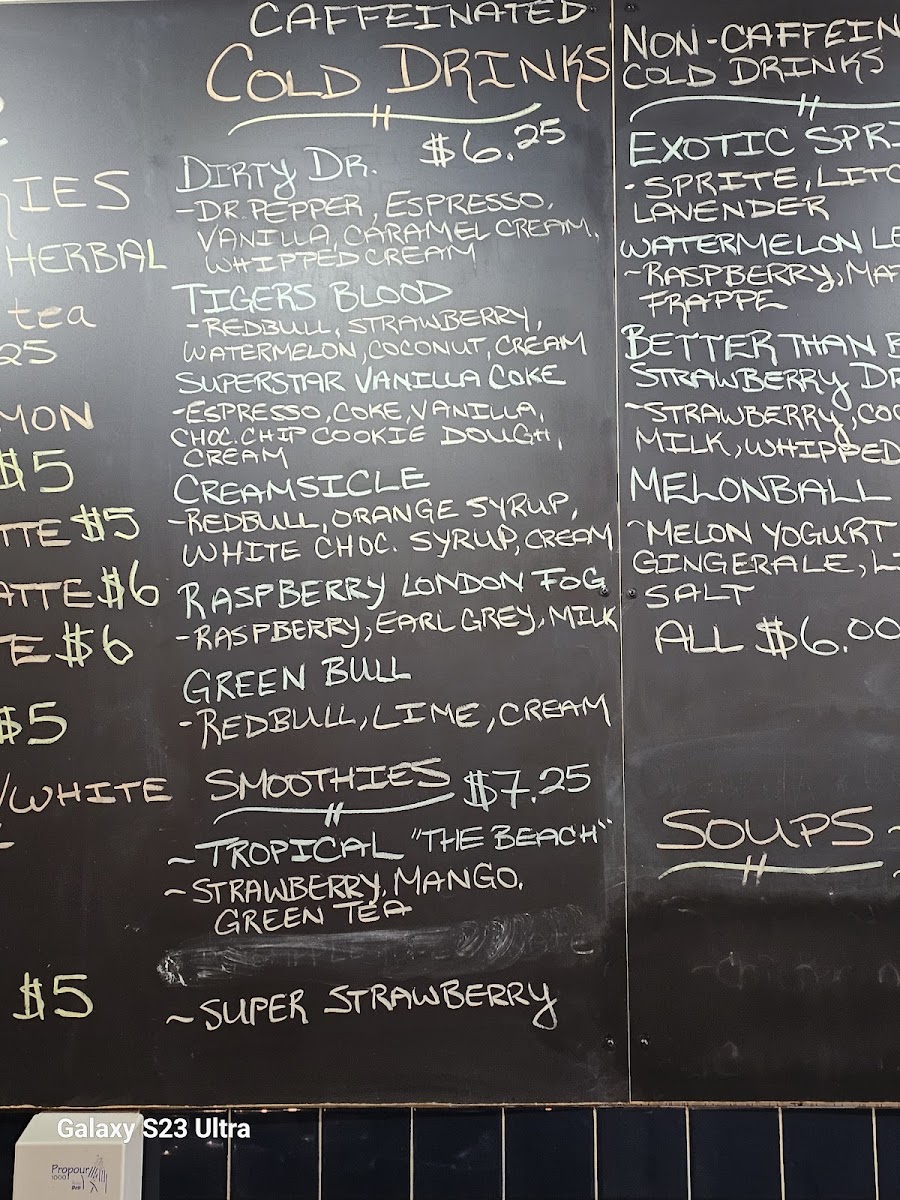 HERBAL
tea
25
$5
$5
$6
$6
$5
WHITE
$5
CAFFEINATED
COLD DRINKS
$6.25
DIRTY DR.
-DR. PEPPER, ESPRESSO,
VANILLA, CARAMEL CREAM,
WHIPPED CREAM
TIGERS BLOOD
-REDBULL, STRAWBERRY,
WATERMELON, COCONUT, CREAM
SUPERSTAR VANILLA COKE
-ESPRESSO, COKE, VANILLA,
CHOC. CHIP COOKIE DOUGH,
CREAM
CREAMSICLE
-REDBULL, ORANGE SYRUP,
WHITE CHOC. SYRUP, CREAM
RASPBERRY LONDON FOG
-RASPBERRY, EARL GREY, MILK
GREEN BULL
-REDBULL, LIME, CREAM
SMOOTHIES $7.25
~TROPICAL "THE BEACH"
~STRAWBERRY, MANGO,
GREEN TEA
~SUPER STRAWBERRY
NON-CAFFEIN
COLD DRINKS
EXOTIC SPR
-SPRITE, LITC
LAVENDER
WATERMELON LE
~RASPBERRY, MA
FRAPPE
BETTER THAN
STRAWBERRY DR
~STRAWBERRY, COC
MILK, WHIPPED
MELONBALL
~MELON YOGURT
GINGERALE, LI
SALT
ALL $6.00
SOUPS ~
Galaxy S23 Ultra
Propour
1000